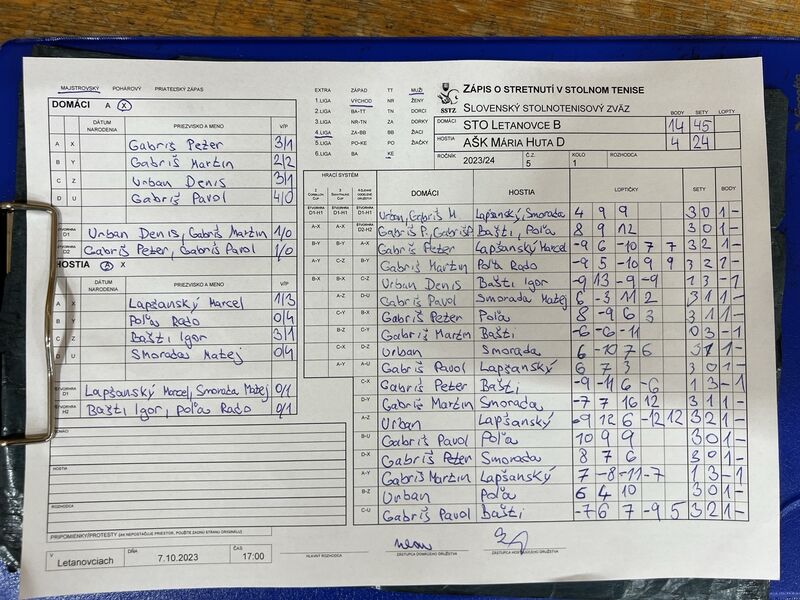 MAJSTROVSKÝ POHÁROVÝ PRIATEĽSKÝ ZÁPAS
DOMÁCI A X
DÁTUM NARODENIA PRIEZVISKO A MENO V/P
A X Gabriš Peter 3/1
B Y Gabriš Martin 2/2
C Z Urban Denis 3/1
D U Gabriš Pavol 4/0
ŠTVORHRA D1 Urban Denis, Gabriš Martin 1/0
ŠTVORHRA D2 Gabriš Peter, Gabriš Pavol 1/0
HOSTIA A X
DÁTUM NARODENIA PRIEZVISKO A MENO V/P
A X Lapšanský Marcel 1/3
B Y Poľa Rado 0/4
C Z Bašti Igor 3/1
D U Smorada Matej 0/4
ŠTVORHRA Lapšanský Marcel, Smorada Matej 0/1
ŠTVORHRA H2 Bašti Igor, Poľa Rado 0/1
DOMÁCI
HOSTIA
ROZHODCA
PRIPOMIENKY/PROTESTY (AK NEPOSTAČUJE PRIESTOR, POUŽITE ZADNÚ STRANU ORIGINÁLU)
V Letanovciach DŇA 7.10.2023 ČAS 17:00
EXTRA ZÁPAD TT MUŽI
1.LIGA VÝCHOD NR ŽENY
2.LIGA BA-TT TN DORCI
3.LIGA NR-TN ZA DORKY
4.LIGA ZA-BB BB ŽIACI
5.LIGA PO-KE PO ŽIAČKY
6.LIGA BA KE
SSTZ
ZÁPIS O STRETNUTÍ V STOLNOM TENISE
SLOVENSKÝ STOLNOTENISOVÝ ZVÄZ
BODY SETY LOPTY
DOMÁCI STO LETANOVCE B 14 45
HOSTIA AŠK MÁRIA HUTA D 4 24
ROČNÍK 2023/24 Č.Z. 5 KOLO 1 ROZHODCA
HRACÍ SYSTÉM
DOMÁCI HOSTIA LOPTIČKY SETY BODY
D1-H1 D1-H1 D1-H1 Urban, Gabriš M. Lapšanský, Smorada 4 9 9 3 0 1 -
A-X A-Y D2-H2 Gabriš P., Gabriš P. Bašti, Poľa 8 9 12 3 0 1 -
B-Y B-X A-X Gabriš Peter Lapšanský Marcel -9 6 -10 7 7 3 2 1 -
A-Y C-Z B-Y Gabriš Martin Poľa Rado -9 5 -10 9 9 3 2 1 -
B-X B-X C-Z Urban Denis Bašti Igor -9 13 -9 -9 1 3 - 1
A-Z D-U Gabriš Pavol Smorada Matej 6 -3 11 2 3 1 1 -
C-Y B-X Gabriš Peter Poľa 8 -9 6 3 3 1 1 -
B-Z C-Y Gabriš Martin Bašti -6 -6 -11 0 3 - 1
C-X D-Z Urban Smorada 6 -10 7 6 3 1 1 -
A-Y A-U Gabriš Pavol Lapšanský 6 7 3 3 0 1 -
C-X Gabriš Peter Bašti -9 -11 6 -6 1 3 - 1
D-Y Gabriš Martin Smorada -7 7 16 12 3 1 1 -
A-Z Urban Lapšanský -9 12 6 -12 12 3 2 1 -
B-U Gabriš Pavol Poľa 10 9 9 3 0 1 -
D-X Gabriš Peter Smorada 8 7 6 3 0 1 -
A-Y Gabriš Martin Lapšanský 7 -8 -11 -7 1 3 - 1
B-Z Urban Poľa 6 4 10 3 0 1 -
C-U Gabriš Pavol Bašti -7 6 7 -9 5 3 2 1 -
HLAVNÝ ROZHODCA ZÁSTUPCA DOMÁCEHO DRUŽSTVA ZÁSTUPCA HOSŤUJÚCEHO DRUŽSTVA